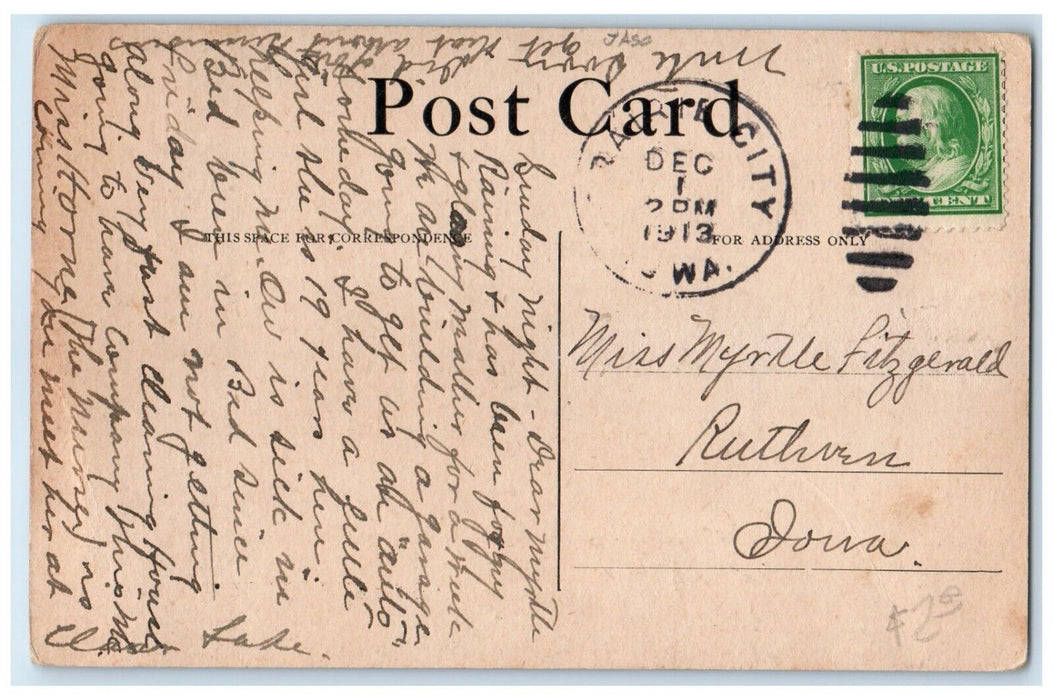 Post Card
THIS SPACE FOR CORRESPONDENCE
FOR ADDRESS ONLY
U.S. POSTAGE
CENT
CITY
DEC
1
2 PM
1913
IOWA.
Miss Myrtle Fitzgerald
Ruthven
Iowa.
Sunday Night - Dear Myrtle
Raining & has been foggy
& gloomy weather for a week
We are building a garage
going to get us an "auto"
Tombe day. I have a little
girl she is 19 years here
helping me. Ow is sick in
Bed been in Bed since
Friday I am not getting
along very fast cleaning House
going to have company this
Mrs Horone (The Nurse) is
coming Du meet her at
Lake.
Did you get that about